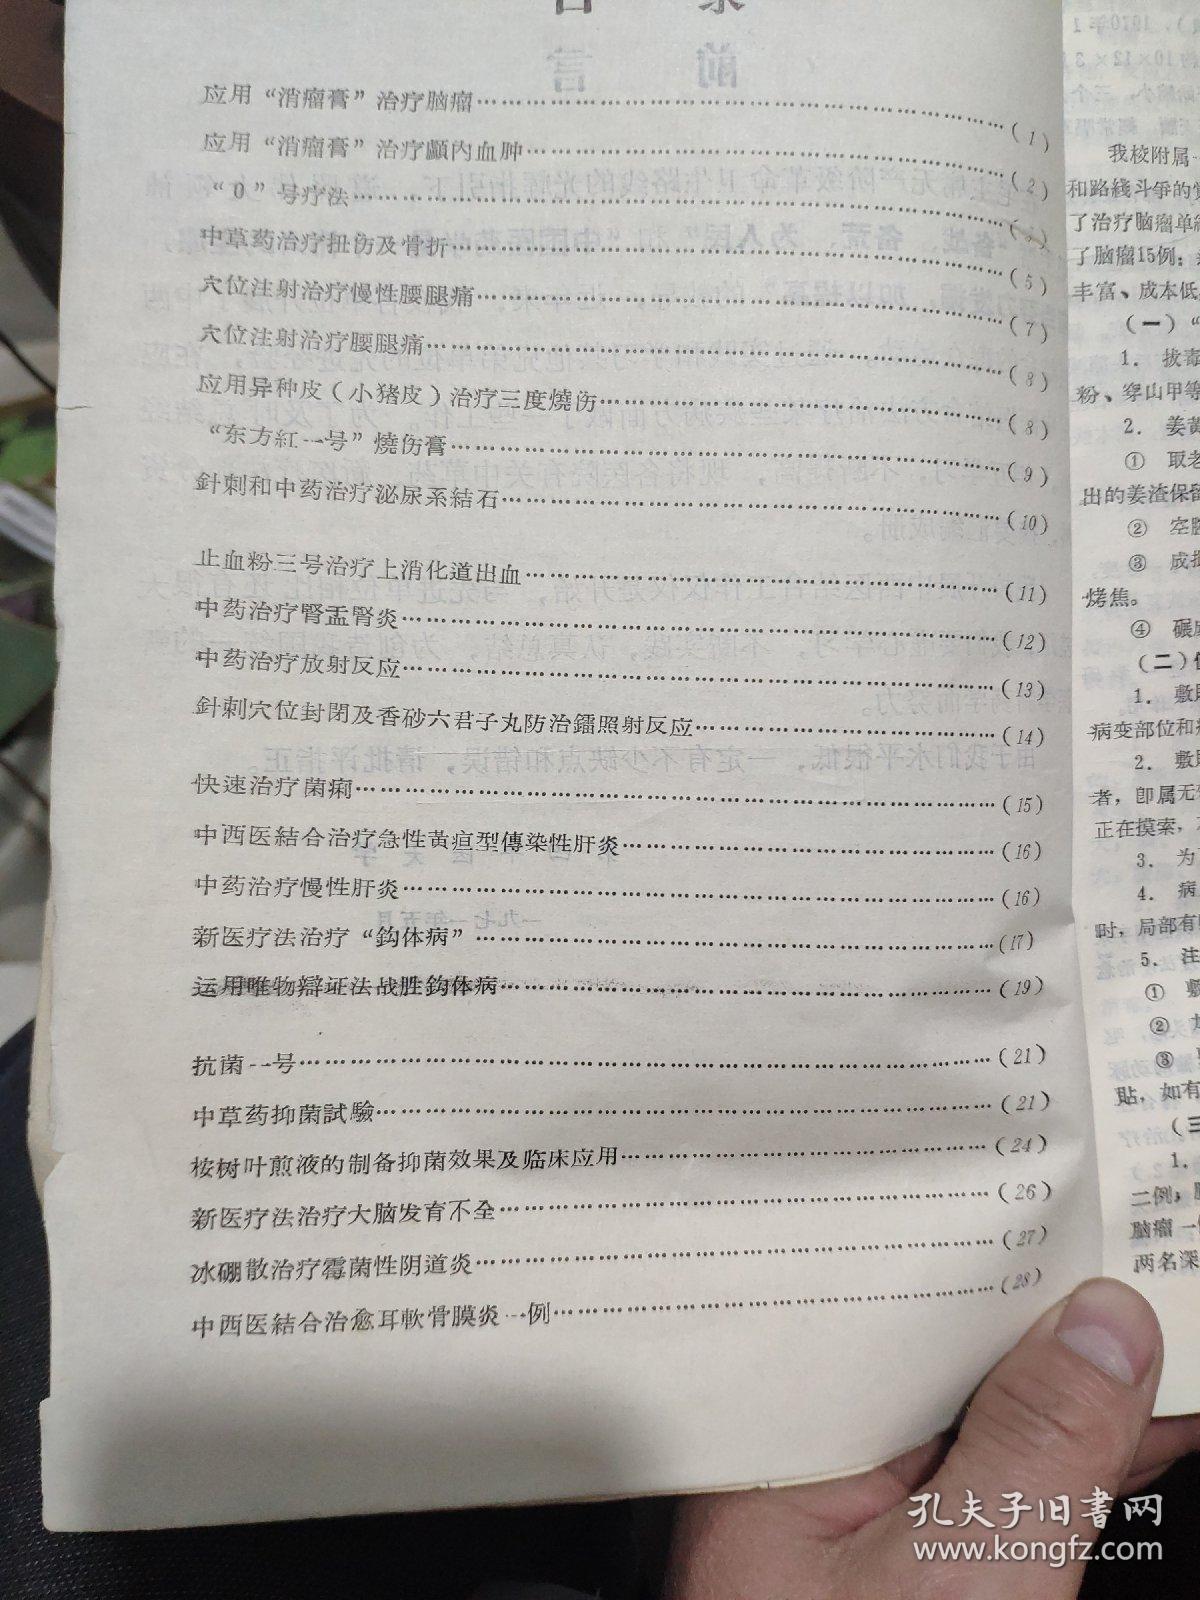 目 录
应用“消瘤膏”治疗脑瘤……(1)
应用“消瘤膏”治疗颅内血肿……(2)
“0”号疗法……
中草药治疗扭伤及骨折……(5)
穴位注射治疗慢性腰腿痛……(7)
穴位注射治疗腰腿痛……(8)
应用异种皮（小猪皮）治疗三度燒伤……(8)
“东方紅一号”燒伤膏……(9)
針刺和中药治疗泌尿系結石……(10)
止血粉三号治疗上消化道出血……(11)
中药治疗腎盂腎炎……(12)
中药治疗放射反应……(13)
針刺穴位封閉及香砂六君子丸防治鐳照射反应……(14)
快速治疗菌痢……(15)
中西医結合治疗急性黃疸型傳染性肝炎……(16)
中药治疗慢性肝炎……(16)
新医疗法治疗“鈎体病”……(17)
运用唯物辯证法战胜鈎体病……(19)
抗菌一号……(21)
中草药抑菌試驗……(21)
桉树叶煎液的制备抑菌效果及临床应用……(24)
新医疗法治疗大脑发育不全……(26)
冰硼散治疗霉菌性阴道炎……(27)
中西医結合治愈耳軟骨膜炎一例……(28)
我校附属
和路綫斗爭的
了治疗脑瘤单
了脑瘤15例；
丰富、成本低
（一）“
1．拔毒
粉、穿山甲等
2．姜黃
① 取老
出的姜渣保留
②
③ 成
烤焦。
④ 碾
（二）
1．敷
病变部位和
2．敷
者，卽属无
正在摸索，
3．为
4．病
时，局部有
5．注
①
②
③
貼，如有
（三
1．
二例，
脑瘤一
两名深
孔夫子旧书网
www.kongfz.com